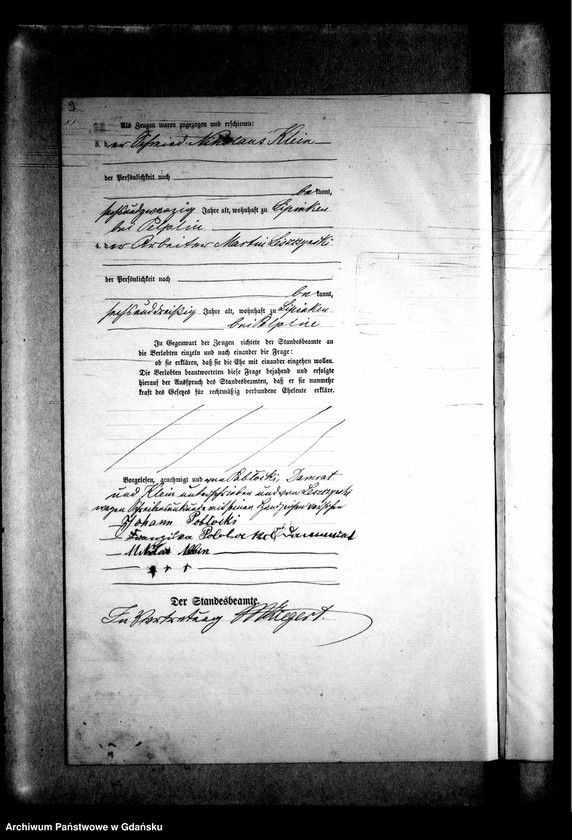 9
Als Zeugen waren zugezogen und erschienen:
3. der Schmied Nikolaus Klein
der Persönlichkeit nach
bekannt,
sechsundzwanzig Jahre alt, wohnhaft zu Lipinken
bei Pelplin
4. der Arbeiter Martin
der Persönlichkeit nach
bekannt,
sechsunddreißig Jahre alt, wohnhaft zu Lipinken
bei Pelplin
In Gegenwart der Zeugen richtete der Standesbeamte an
die Verlobten einzeln und nach einander die Frage:
ob sie erklären, daß sie die Ehe mit einander eingehen wollen.
Die Verlobten beantworteten diese Frage bejahend und erfolgte
hierauf der Ausspruch des Standesbeamten, daß er sie nunmehr
kraft des Gesetzes für rechtmäßig verbundene Eheleute erkläre.
Vorgelesen, genehmigt und von Pobłocki, Damrat
und Klein unterschrieben und von
wegen Schreibensunkunde mit seinem Handzeichen versehen
Johann Pobłocki
Franziska
Klein
+ + +
Der Standesbeamte.
In Vertretung
Archiwum Państwowe w Gdańsku